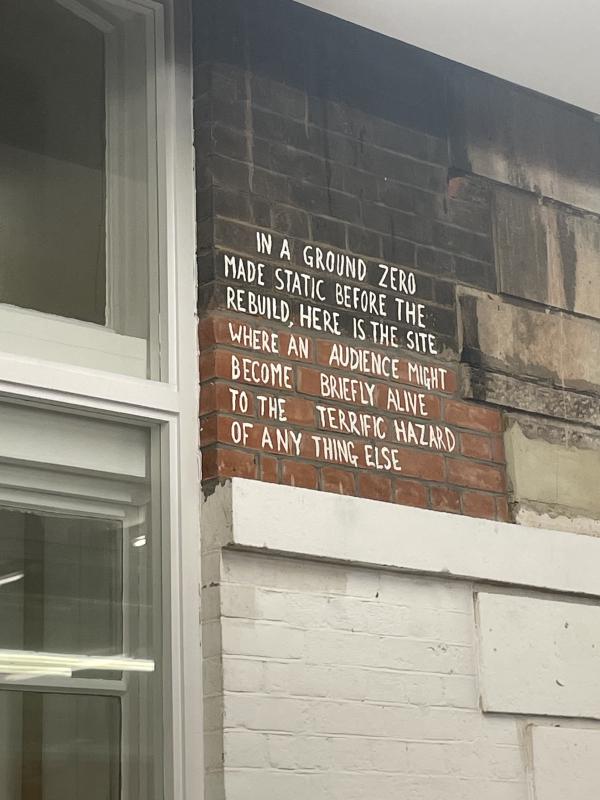 IN A GROUND ZERO
MADE STATIC BEFORE THE
REBUILD, HERE IS THE SITE
WHERE AN AUDIENCE MIGHT
BECOME BRIEFLY ALIVE
TO THE TERRIFIC HAZARD
OF ANY THING ELSE